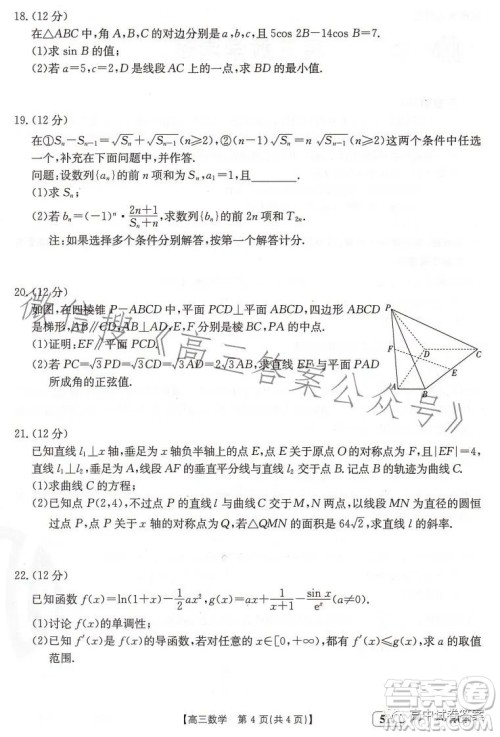 18.(12 分)
在△ABC 中,角 A,B,C 的对边分别为 a,b,c,且 5cos 2B-14cos B=7.
(1)求 sin B 的值;
(2)若 a=5,c=2,D是线段 AC 上的一点,求 BD 的最小值.
19.(12 分)
在①Sₙ-Sₙ₋₁=√Sₙ+√Sₙ₋₁(n≥2),②(n-1)√Sₙ=n√Sₙ₋₁(n≥2)这两个条件中任选
一个,补充在下面问题中,并作答.
问题:设数列{aₙ}的前 n 项和为 Sₙ,a₁=1,且________.
(1)求 Sₙ;
(2)若 bₙ=(-1)ⁿ·(2n+1)/(Sₙ+n),求数列{bₙ}的前 2n 项和 T₂ₙ.
注:如果选择多个条件分别解答,按第一个解答计分.
20.(12 分)
如图,在四棱锥 P-ABCD 中,平面 PCD⊥平面 ABCD,四边形 ABCD
是梯形,AB∥CD,AB⊥AD,E,F 分别是棱 BC,PA 的中点.
(1)证明:EF∥平面 PCD.
(2)若 PC=√3PD=√3CD=√3AD=2√3AB,求直线 EF 与平面 PAD
所成角的正弦值.
P
F
D
C
E
A
B
21.(12 分)
已知直线 l₁⊥x 轴,垂足为 x 轴负半轴上的点 E,点 E 关于原点 O 的对称点为 F,且|EF|=4,
直线 l₂⊥l₁,垂足为 A,线段 AF 的垂直平分线与直线 l₂ 交于点 B,记点 B 的轨迹为曲线 C.
(1)求曲线 C 的方程;
(2)已知点 P(2,4),不过点 P 的直线 l 与曲线 C 交于 M,N 两点,以线段 MN 为直径的圆恒
过点 P,点 P 关于 x 轴的对称点为 Q,若△QMN 的面积是 64√2,求直线 l 的斜率.
22.(12 分)
已知函数 f(x)=ln(1+x)-1/2ax²,g(x)=ax+1/(x+1)-sin x/eˣ(a≠0).
(1)讨论 f(x)的单调性;
(2)若 f′(x)是 f(x)的导函数,若对任意的 x∈[0,+∞),都有 f′(x)≤g(x),求 a 的取值
范围.
【高三数学 第 4 页(共 4 页)】
微信搜《高三答案公众号》
高中试卷答案